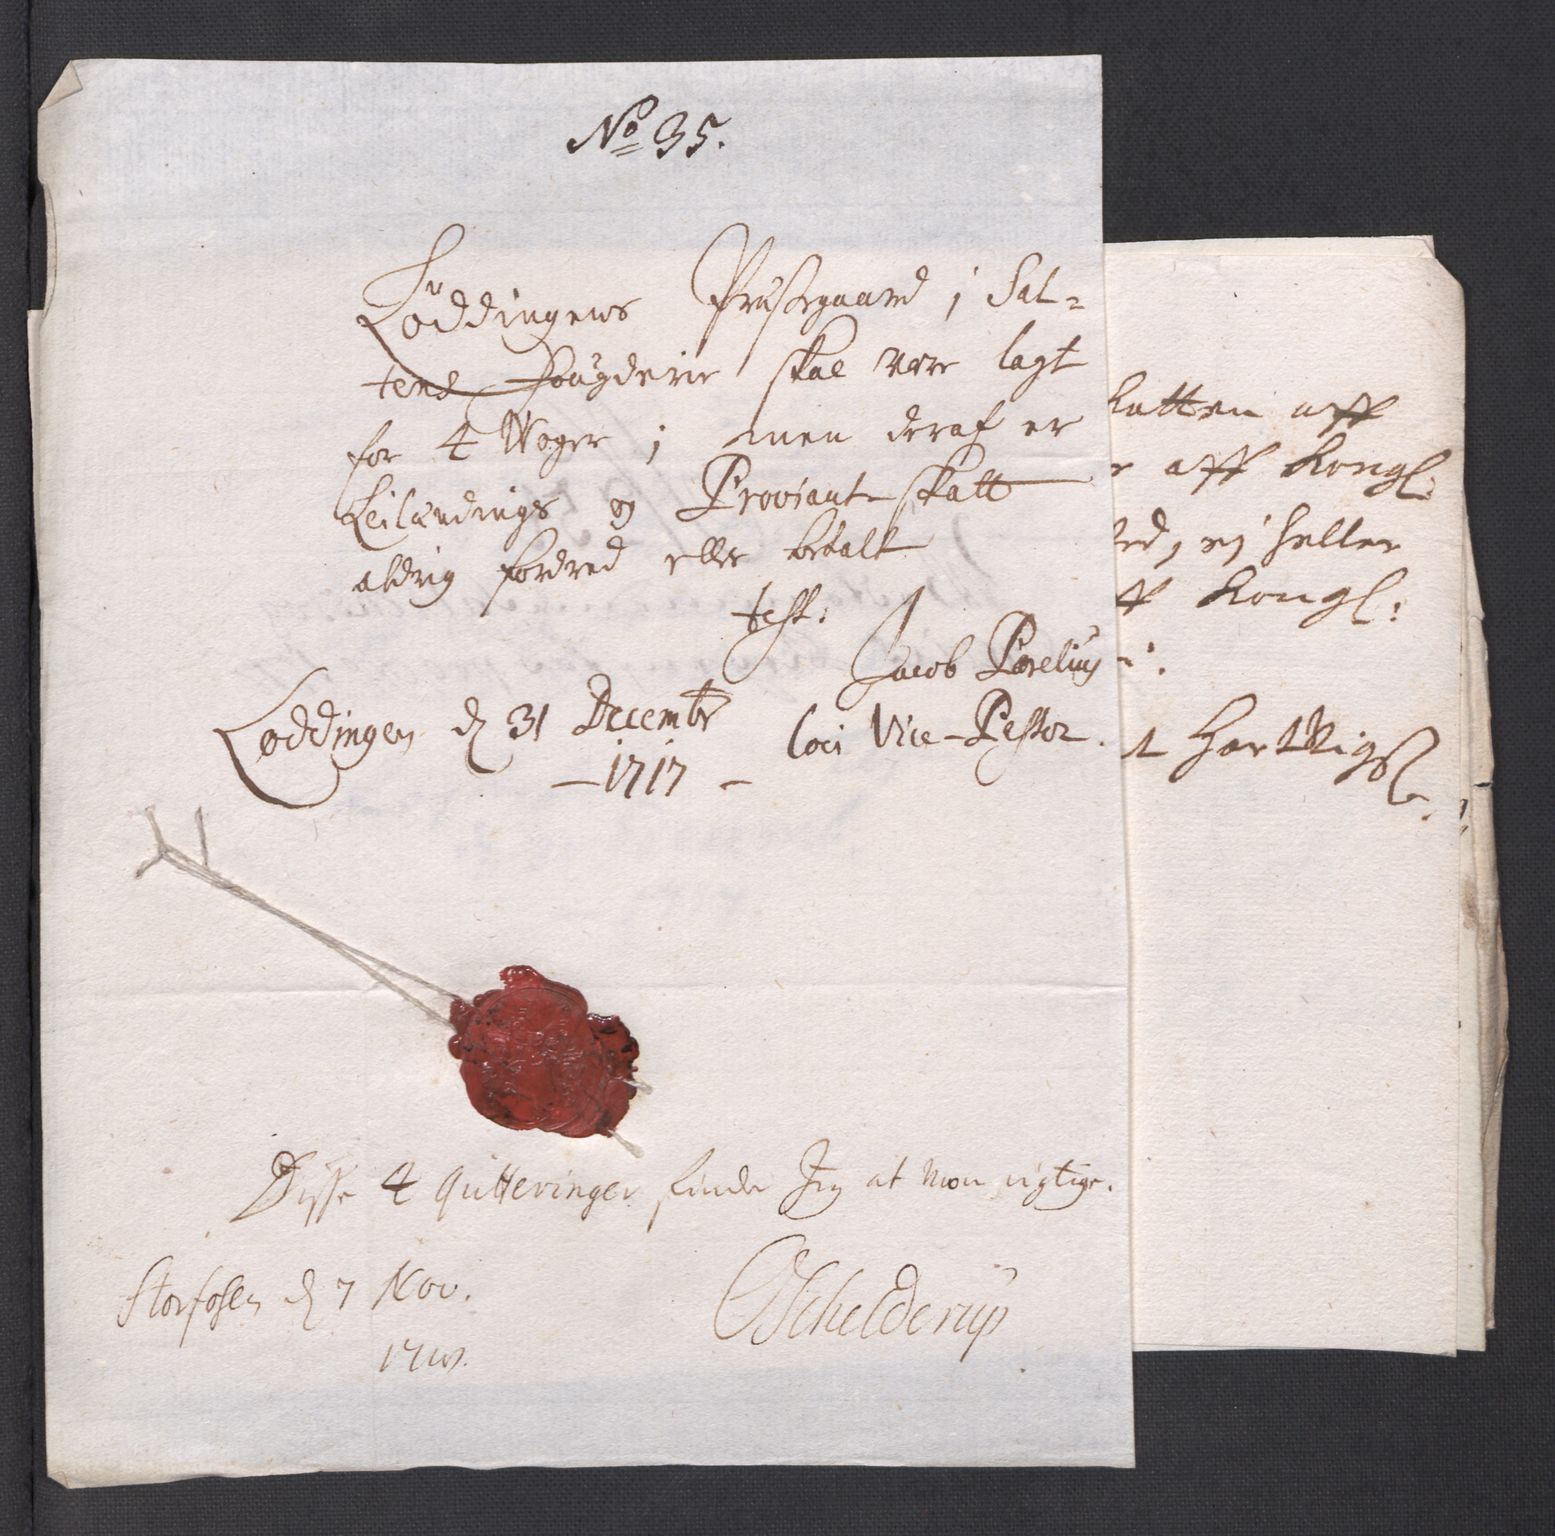 No 35.
Løddingens Præstegaard i Sal-
tens Fougderie skal være lagt
for 4 Woger; men deraf er
Leilændings og Proviant-skatt
aldrig fordred eller betalt
test:
Jacob Parelius
Loci Vice-Pastor.
Løddingen d 31 Decembr
- 1717 -
Disse 4 qvitteringer finder Jeg at vere rigtige.
Storfosen d 7 Nov.
OSchelderup
katten aff
r aff Kongl:
ed, ej heller
ff Kongl:
t HartWigs